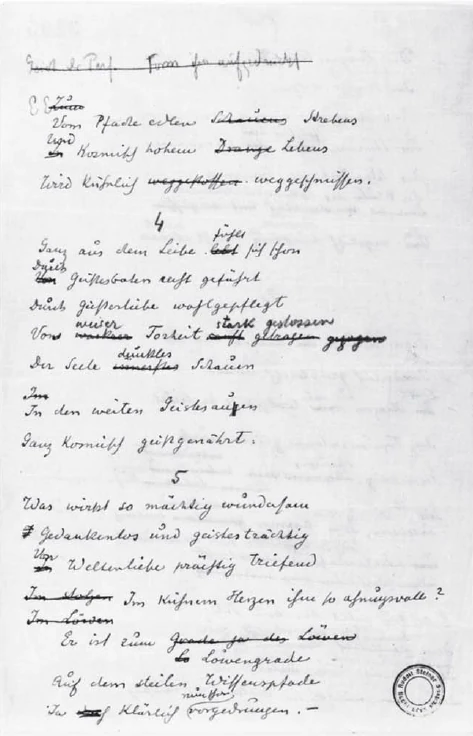 Geist de Prof. Form ihr aufgedrückt
Zum
Vom Pfade edlen Schauens Strebens
Und
In Kosmisch hohem Drange Lebens
Wird Kühnlich weggestossen weggeschmissen.
4
fühlt
Ganz aus dem Leibe lebt sich schon
Durch
Von Geistesboten recht geführt
Durch Geisterliebe wohlgepflegt
weiser stark gestossen
Von Torheit sanft getragen gezogen
dunkles
Der Seele innerstes Schauen
Im
In den weiten Geistesaugen
Ganz Kosmisch geistgenährt.
5
Was wirkt so mächtig wundersam
Gedankenlos und geistesträchtig
Von
In Weltenliebe prächtig triefend
Im stolzen Im Kühnem Herzen ihm so ahnungsvolle?
Im Löwen
Er ist zum Grade ja des Löwen
So Löwengrade
Auf dem steilen Wissenspfade
Ja klärlich vorgedrungen. –